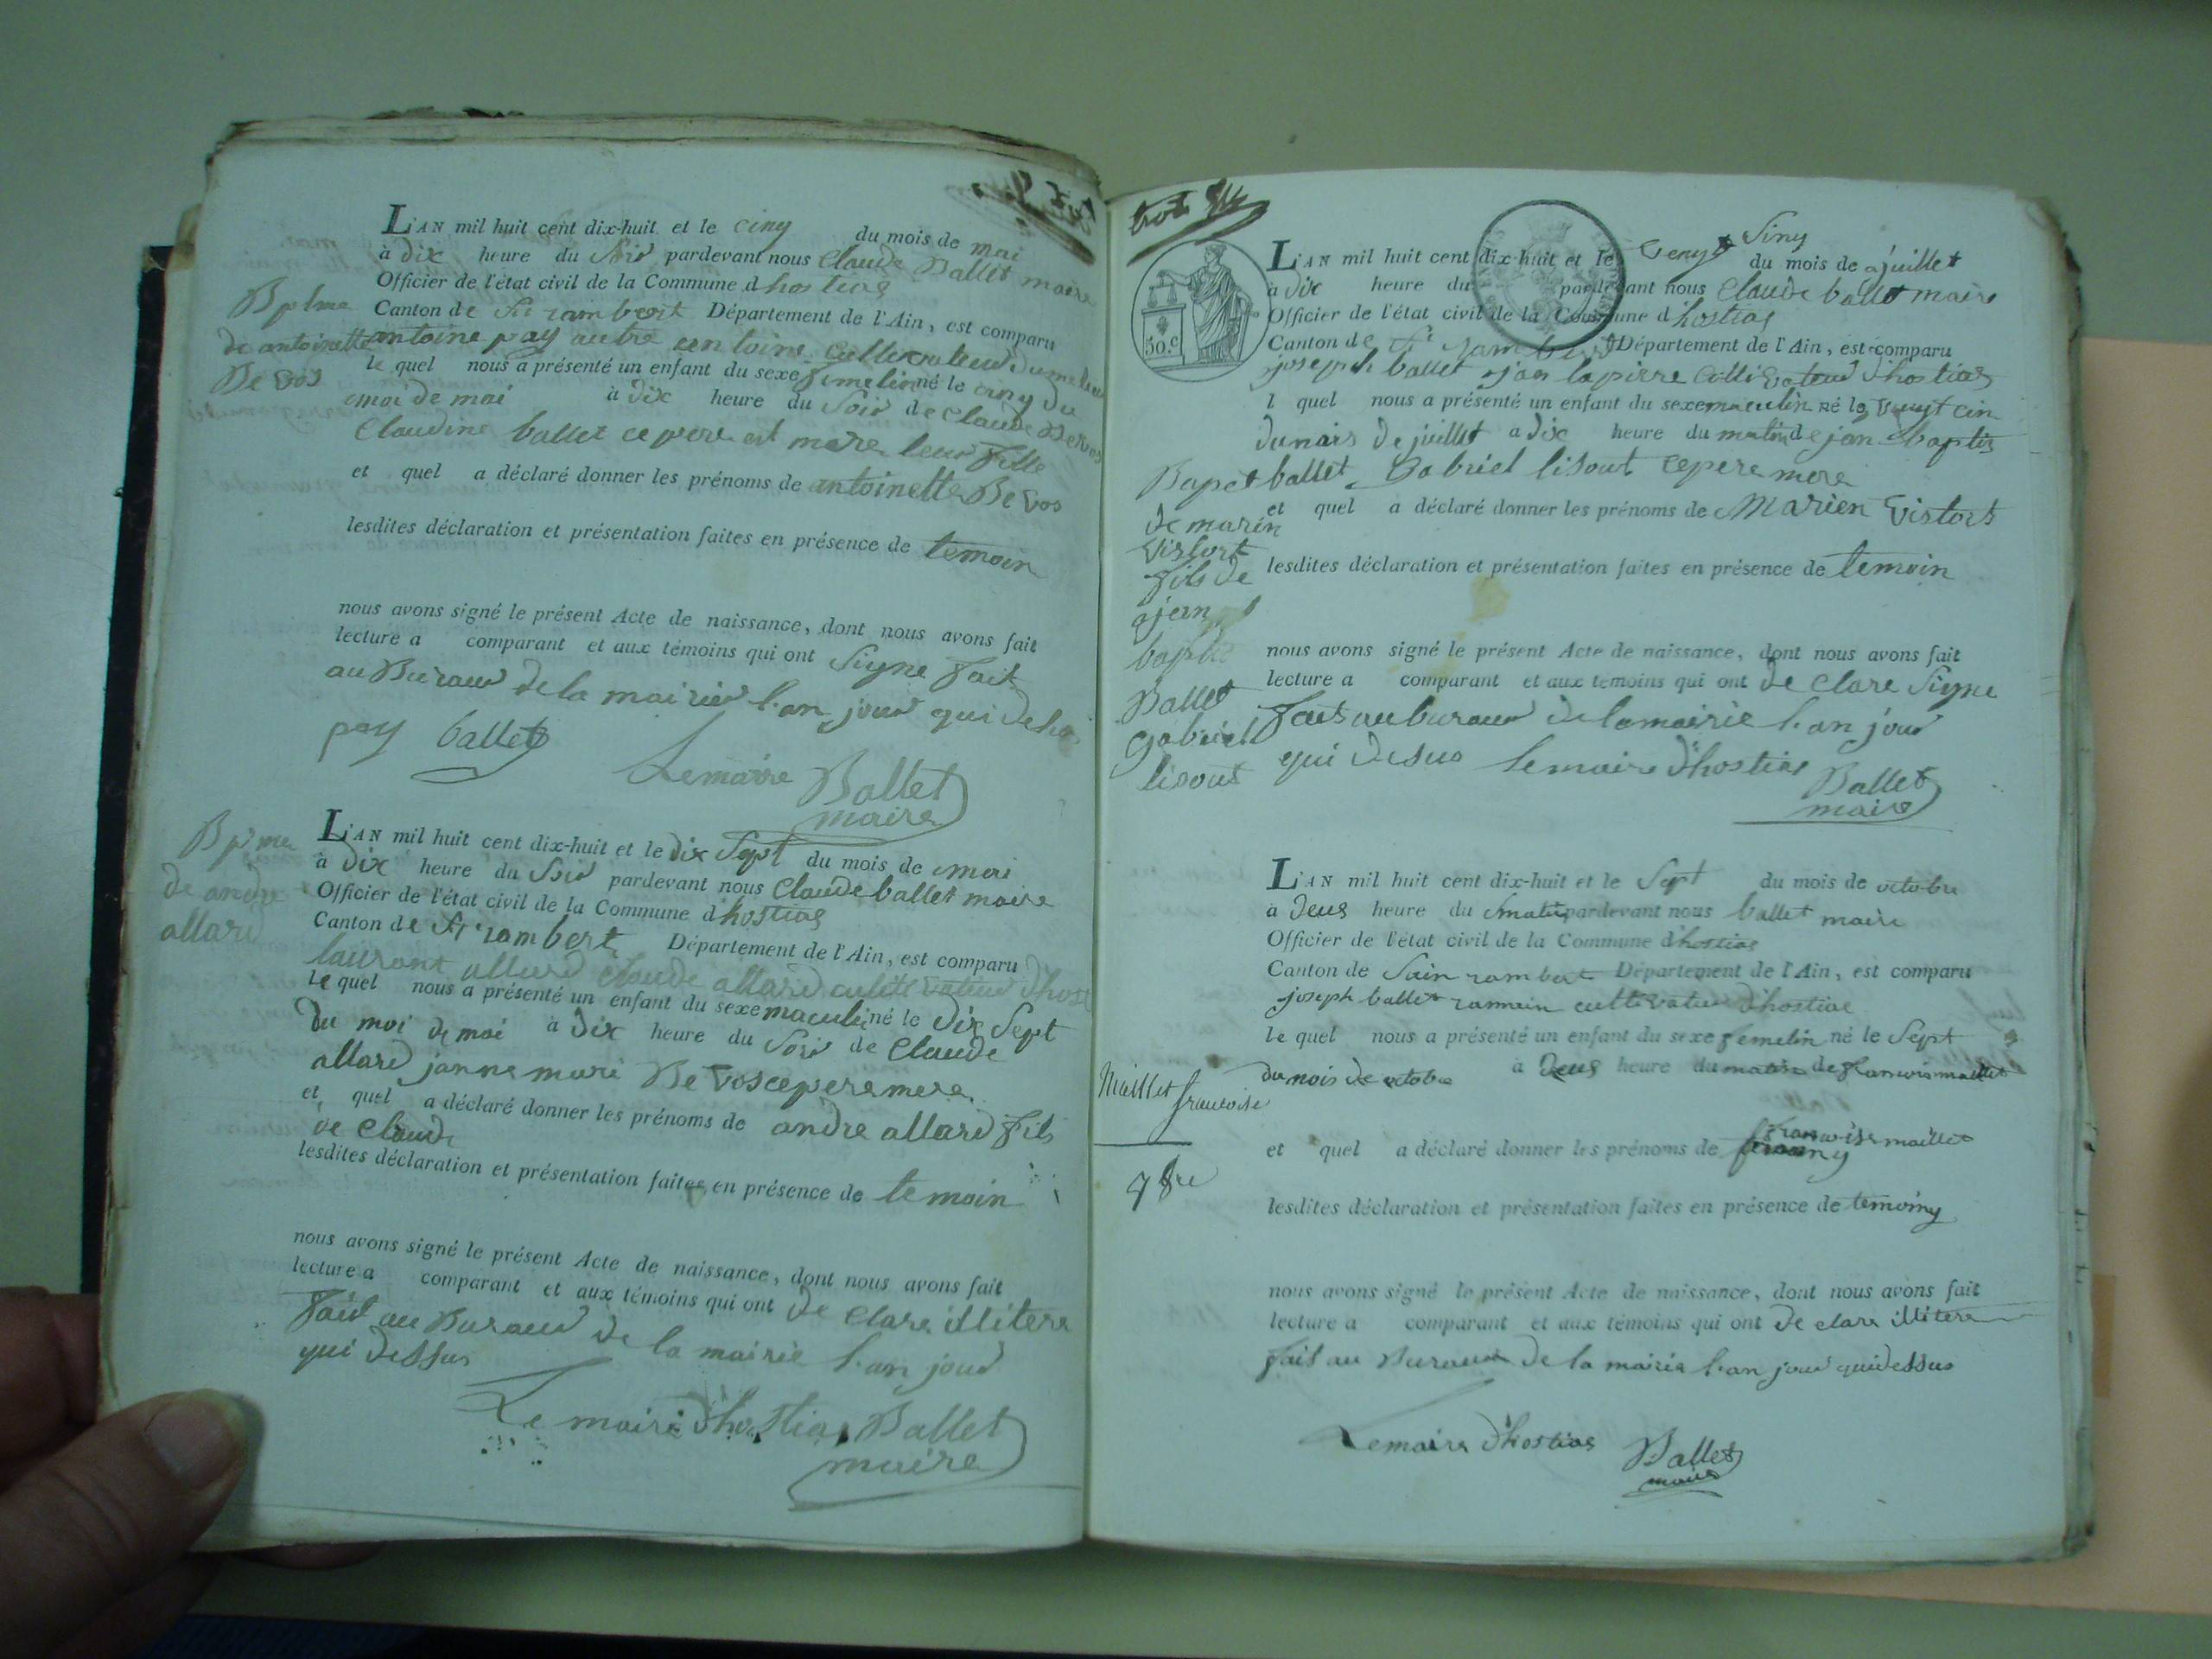 L'AN mil huit cent dix-huit et le cinq du mois de mai
à dix heure du Soir pardevant nous Claude Ballet maire
Officier de l'état civil de la Commune d hostias
Canton de St rambert Département de l'Ain, est comparu
de antoinette
De Vos
antoine pay autre
le quel nous a présenté un enfant du sexe femelin né le cinq du
moi de mai à dix heure du Soir de Claude De Vos
Claudine ballet ce pere est mere leur fille
et quel a déclaré donner les prénoms de antoinette De Vos
lesdites déclaration et présentation faites en présence de temoin
nous avons signé le présent Acte de naissance, dont nous avons fait
lecture a comparant et aux témoins qui ont Signe fait
au Buraud de la mairie l'an jour qui
pay ballet
Lemaire Ballet
maire
de andre
allard
L'AN mil huit cent dix-huit et le dix Sept du mois de mai
à dix heure du Soir pardevant nous Claude ballet maire
Officier de l'état civil de la Commune d hostias
Canton de St rambert Département de l'Ain, est comparu
laurant allard claude allard
le quel nous a présenté un enfant du sexe maculin né le Dix Sept
Du moi de mai à Dix heure du Soir de Claude
allard janne mari De Vos ce pere mere
et quel a déclaré donner les prénoms de andre allard fils
de Claude
lesdites déclaration et présentation faites en présence de temoin
nous avons signé le présent Acte de naissance, dont nous avons fait
lecture a comparant et aux témoins qui ont de clare illitere
fait au Buraud de la mairie l'an jour
qui dessus
Le maire d'hostias Ballet
maire
50.c
L'AN mil huit cent dix-huit et le Vengt Sinq du mois de juillet
à dix heure du pardevant nous Claude ballet maire
Officier de l'état civil de la Commune d hostias
Canton de St rambert Département de l'Ain, est comparu
joseph ballet jan la pierre Cultivateur d'hostias
l quel nous a présenté un enfant du sexe maculin né le Vengt cin
du mois de juillet a dix heure du matin de jan baptis
ballet Gabriel lisout ce pere mere
et quel a déclaré donner les prénoms de Marien Vistort
lesdites déclaration et présentation faites en présence de temoin
de marien
Vistort
fils de
jean
baptis
Ballet
gabriel
lisout
nous avons signé le présent Acte de naissance, dont nous avons fait
lecture a comparant et aux temoins qui ont de clare Signe
fait au buraud de la mairie l'an jour
qui desus le maire d'hostias Ballet
maire
L'AN mil huit cent dix-huit et le Sept du mois de octobre
à Deus heure du matin pardevant nous ballet maire
Officier de l'état civil de la Commune d'hostias
Canton de Sain rambert Département de l'Ain, est comparu
joseph ballet romain cultivateur d'hostias
le quel nous a présenté un enfant du sexe femelin né le Sept
du mois de octobre à Deus heure du matin de francois maillet
Maillet
francoise
et quel a déclaré donner les prénoms de francoise maillet
lesdites déclaration et présentation faites en présence de temoing
nous avons signé le présent Acte de naissance, dont nous avons fait
lecture a comparant et aux témoins qui ont de clare illitere
fait au Buraud de la mairie l'an jour qui dessus
Lemaire d'hostias Ballet
maire